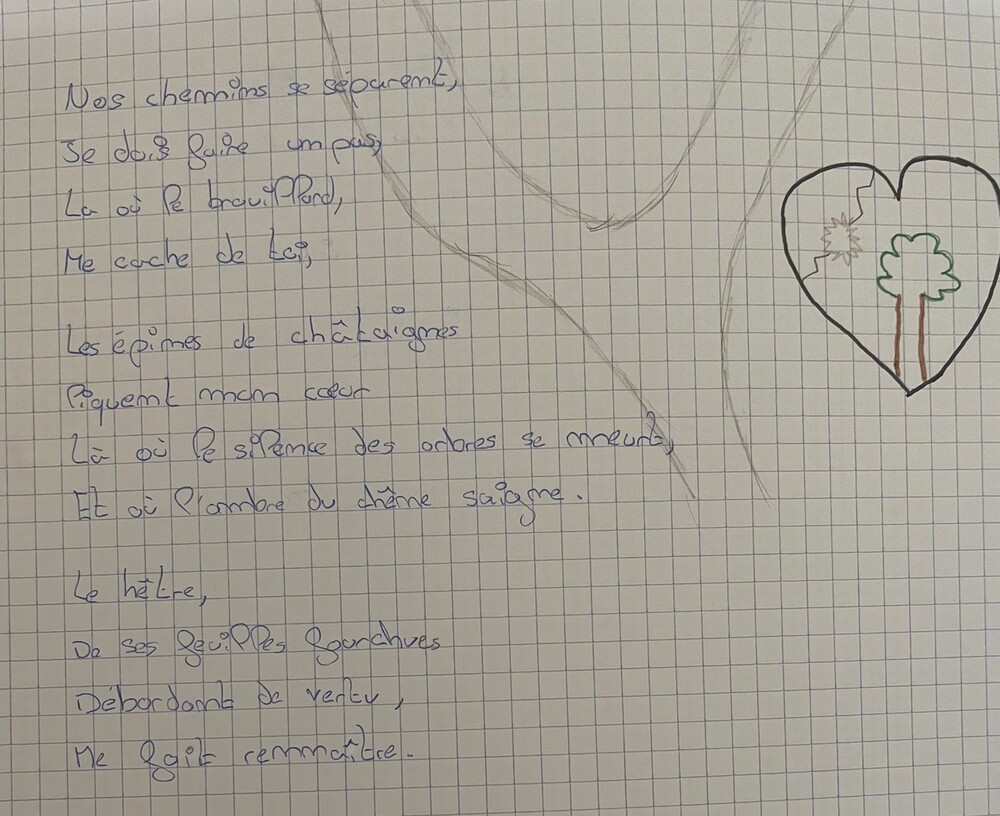 Nos chemins se séparent,
Je dois faire un pas,
La où le brouillard,
Me cache de toi,
Les épines de châtaignes
Piquent mon cœur
Là où le silence des arbres se meurt,
Et où l'ombre du chêne saigne.
Le hêtre,
De ses feuilles fourchues
Débordant de vertu,
Me fait rennaître.